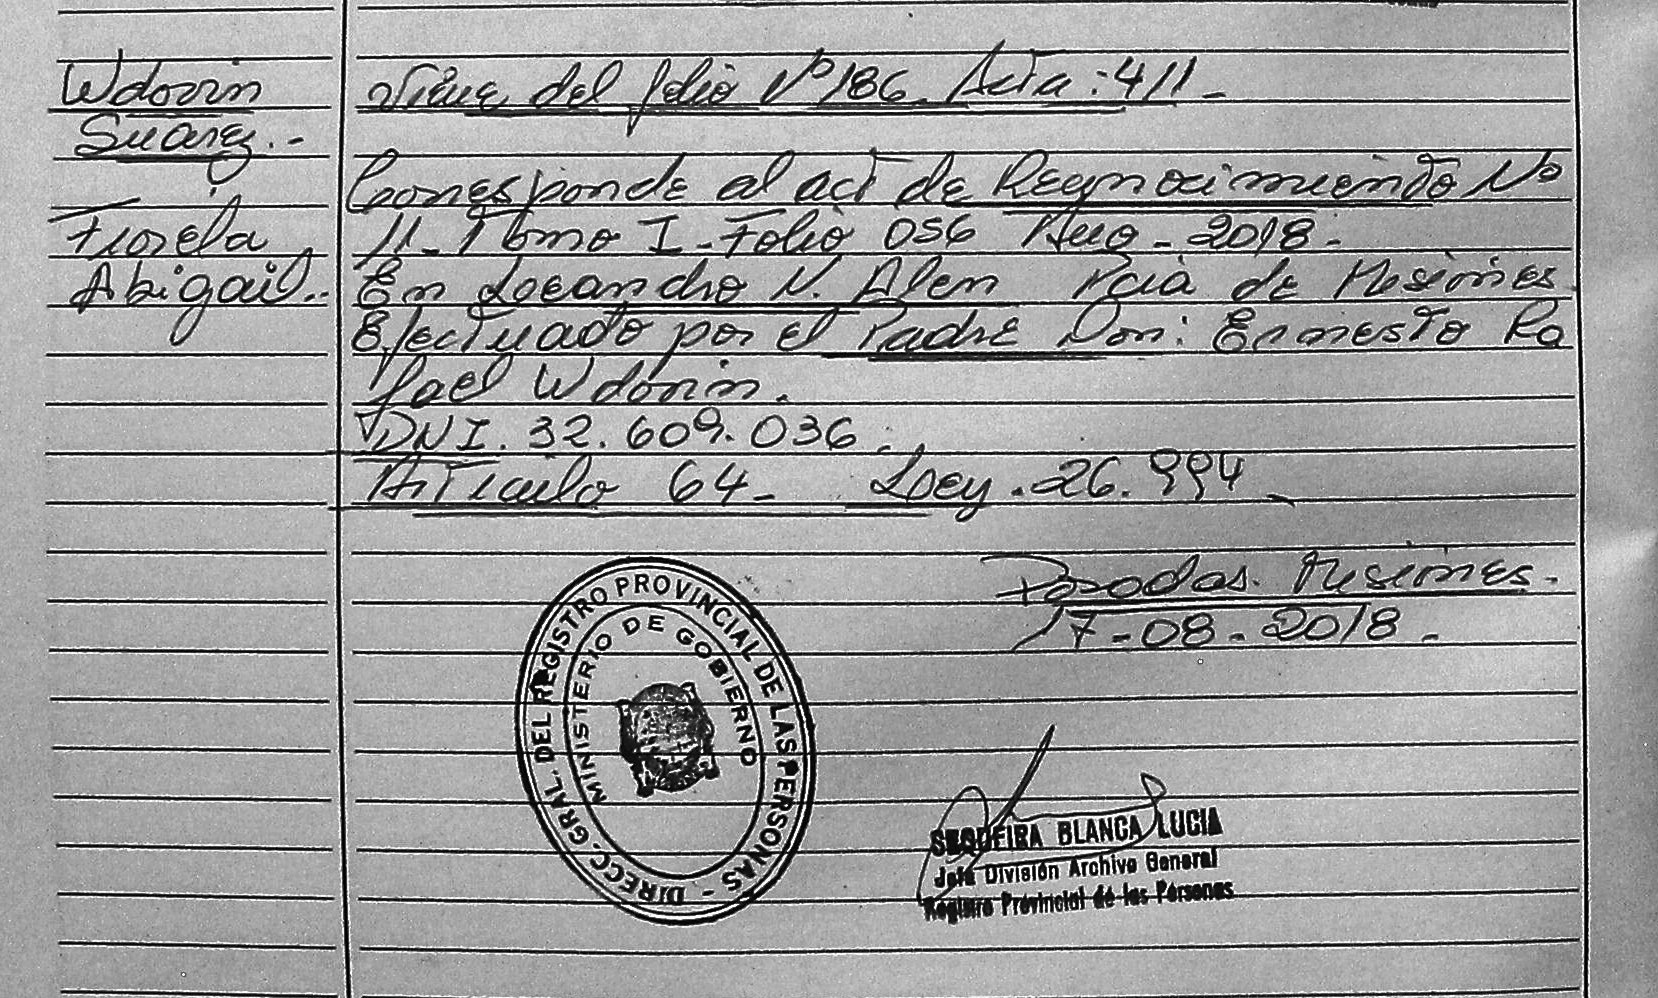 Wdovin
Suarez.-
Fiorela
Abigail..
Viene del folio Nº 186. Acta: 411-
Corresponde al act de Reconocimiento Nº
11- Tomo I- Folio 056 Año - 2018-
En Leandro N. Alem Pcia de Misiones
Efectuado por el Padre Don: Ernesto Ra
fael Wdovin.
DNI. 32.609.036.
Articulo 64- Ley. 26.994-
Posadas. Misiones.
17-08-2018.
DIRECC. GRAL. DEL REGISTRO PROVINCIAL DE LAS PERSONAS -
MINISTERIO DE GOBIERNO
SEQUEIRA BLANCA LUCIA
Jefa División Archivo General
Registro Provincial de las Personas